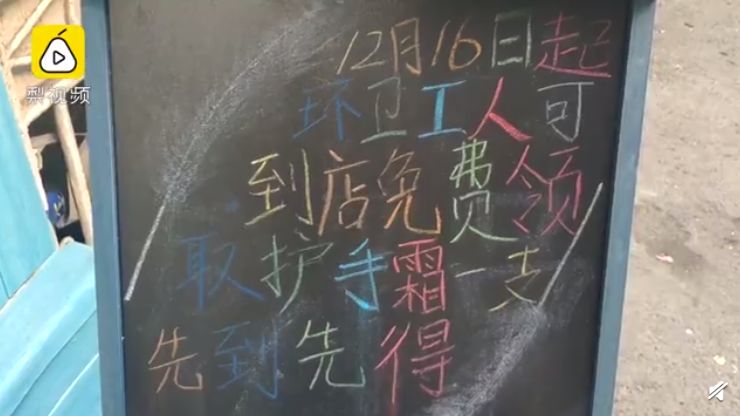 梨视频
12月16日起
环卫工人可
到店免费领
取护手霜一支
先到先得